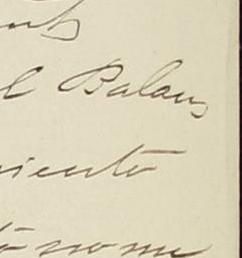 l Balans
iento
to no me